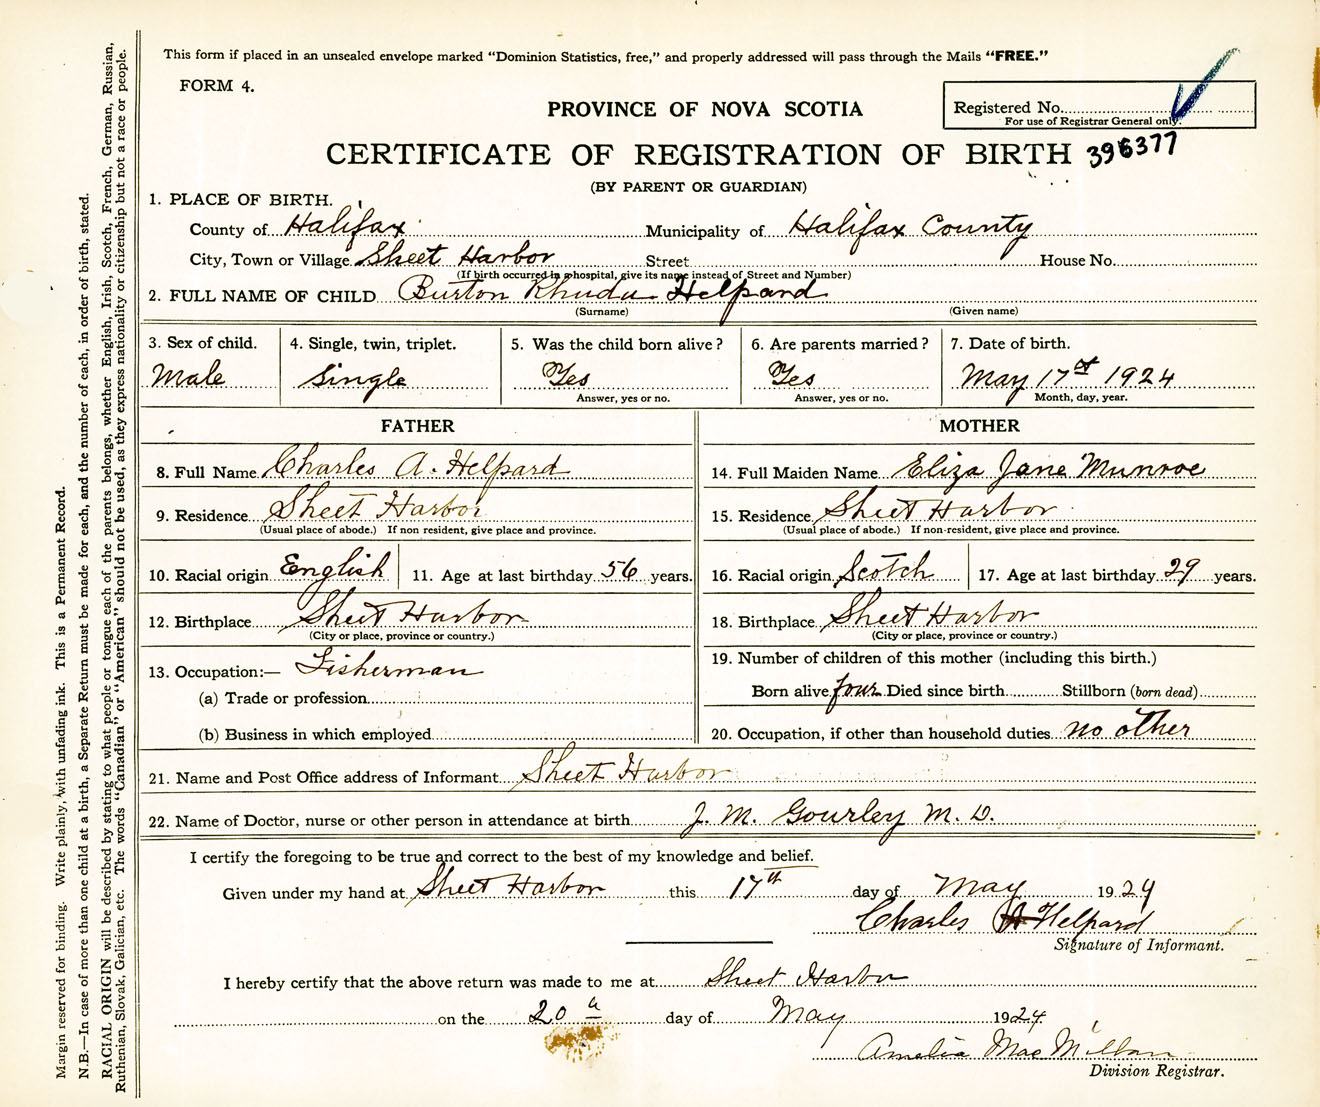 This form if placed in an unsealed envelope marked "Dominion Statistics, free," and properly addressed will pass through the Mails "FREE."
FORM 4.
PROVINCE OF NOVA SCOTIA
Registered No.
For use of Registrar General only.
CERTIFICATE OF REGISTRATION OF BIRTH 396377
(BY PARENT OR GUARDIAN)
1. PLACE OF BIRTH.
County of Halifax Municipality of Halifax County
City, Town or Village Sheet Harbor Street House No.
(If birth occurred in a hospital, give its name instead of Street and Number)
2. FULL NAME OF CHILD Burton Rhuda Helpard
(Surname) (Given name)
3. Sex of child. 4. Single, twin, triplet. 5. Was the child born alive? 6. Are parents married? 7. Date of birth.
Male Single Yes Yes May 17st 1924
Answer, yes or no. Answer, yes or no. Month, day, year.
FATHER MOTHER
8. Full Name Charles A. Helpard 14. Full Maiden Name Eliza Jane Munroe
9. Residence Sheet Harbor 15. Residence Sheet Harbor
(Usual place of abode.) If non resident, give place and province. (Usual place of abode.) If non-resident, give place and province.
10. Racial origin English 11. Age at last birthday 56 years. 16. Racial origin Scotch 17. Age at last birthday 29 years.
12. Birthplace Sheet Harbor 18. Birthplace Sheet Harbor
(City or place, province or country.) (City or place, province or country.)
13. Occupation:— Fisherman 19. Number of children of this mother (including this birth.)
(a) Trade or profession Born alive four Died since birth Stillborn (born dead)
(b) Business in which employed 20. Occupation, if other than household duties no other
21. Name and Post Office address of Informant Sheet Harbor
22. Name of Doctor, nurse or other person in attendance at birth J. M. Gourley M. D.
I certify the foregoing to be true and correct to the best of my knowledge and belief.
Given under my hand at Sheet Harbor this 17th day of May 1924
Charles A Helpard
Signature of Informant.
I hereby certify that the above return was made to me at Sheet Harbor
on the 20 day of May 1924
Amelia MacMillan
Division Registrar.
Margin reserved for binding. Write plainly, with unfading ink. This is a Permanent Record.
N.B.—In case of more than one child at a birth, a Separate Return must be made for each, and the number of each, in order of birth, stated.
RACIAL ORIGIN will be described by stating to what people or tongue each of the parents belongs, whether English, Irish, Scotch, French, German, Russian,
Ruthenian, Slovak, Galician, etc. The words "Canadian" or "American" should not be used, as they express nationality or citizenship but not a race or people.